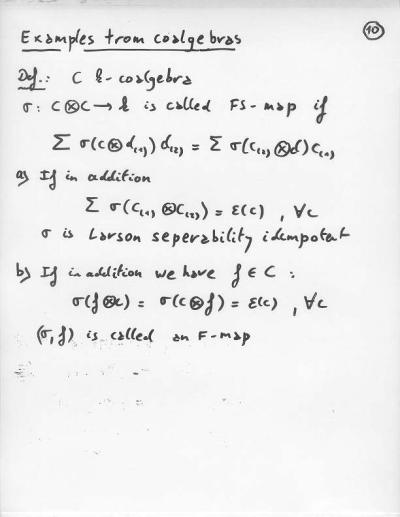 10
Examples from coalgebras
Def.: C k-coalgebra
σ: C⊗C → k is called FS-map if
∑ σ(c⊗d₍₁₎)d₍₂₎ = ∑ σ(c₍₂₎⊗d)c₍₁₎
a) If in addition
∑ σ(c₍₁₎⊗c₍₂₎) = ε(c) , ∀c
σ is Larson seperability idempotent
b) If in addition we have f ∈ C :
σ(f⊗c) = σ(c⊗f) = ε(c) , ∀c
(σ,f) is called an F-map